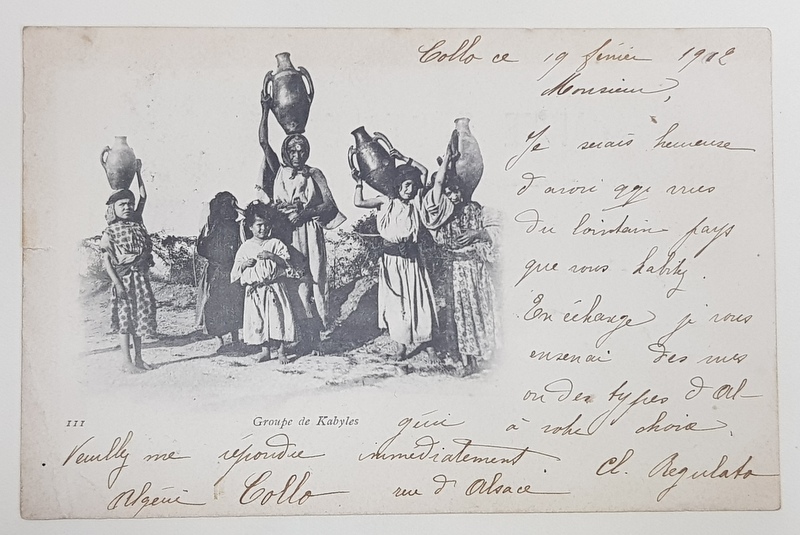 Collo ce 19 février 1902
Monsieur,
Je serais heureuse
d'avoir qqs vues
du lointain pays
que vous habitez.
En échange je vous
enverrai des vues
ou des types d'Al-
gérie à votre choix.
111
Groupe de Kabyles
Veuillez me répondre immédiatement
Cl. Regulato
Algérie Collo rue d'Alsace